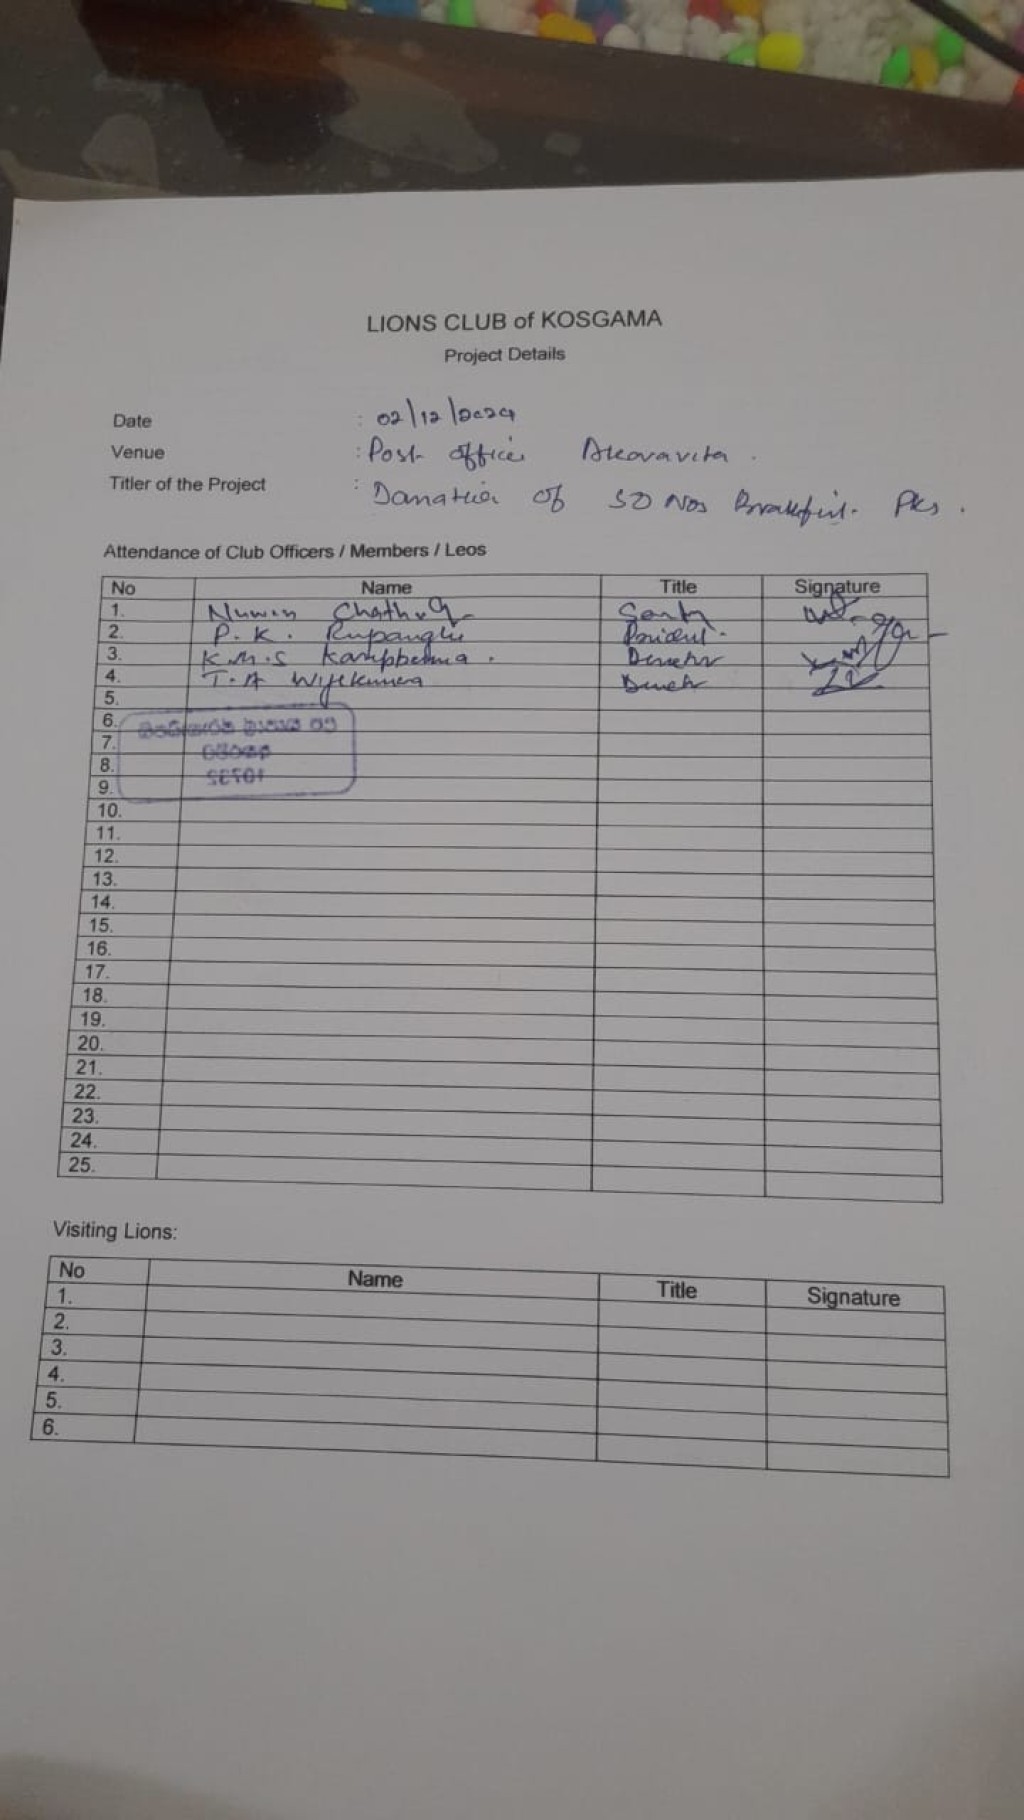 LIONS CLUB of KOSGAMA
Project Details
Date : 02/12/2024
Venue : Post office Akaravita .
Titler of the Project : Donation of 50 Nos Breakfast Pks .
Attendance of Club Officers / Members / Leos
No Name Title Signature
1. Nuwan
2. P. K. President
3. K.M.S Director
4. T. A Wijekumara Director
5.
6.
7.
8.
9.
10.
11.
12.
13.
14.
15.
16.
17.
18.
19.
20.
21.
22.
23.
24.
25.
Visiting Lions:
No Name Title Signature
1.
2.
3.
4.
5.
6.